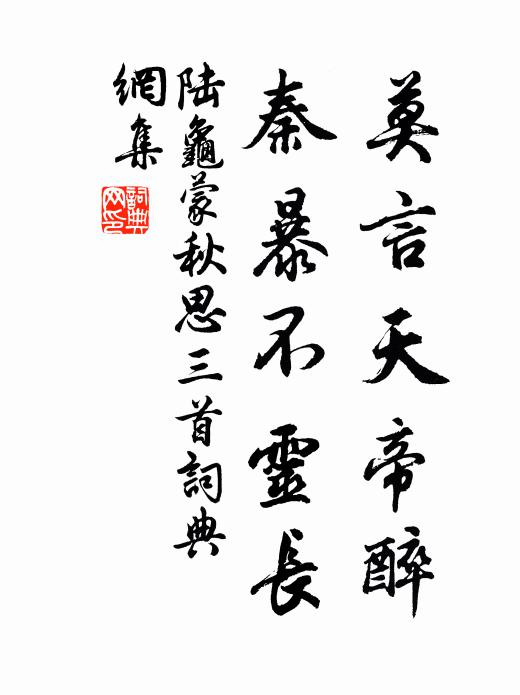 莫言天帝醉
秦暴不靈長
陆龜蒙秋思三首詞典
網集
詞典
网印